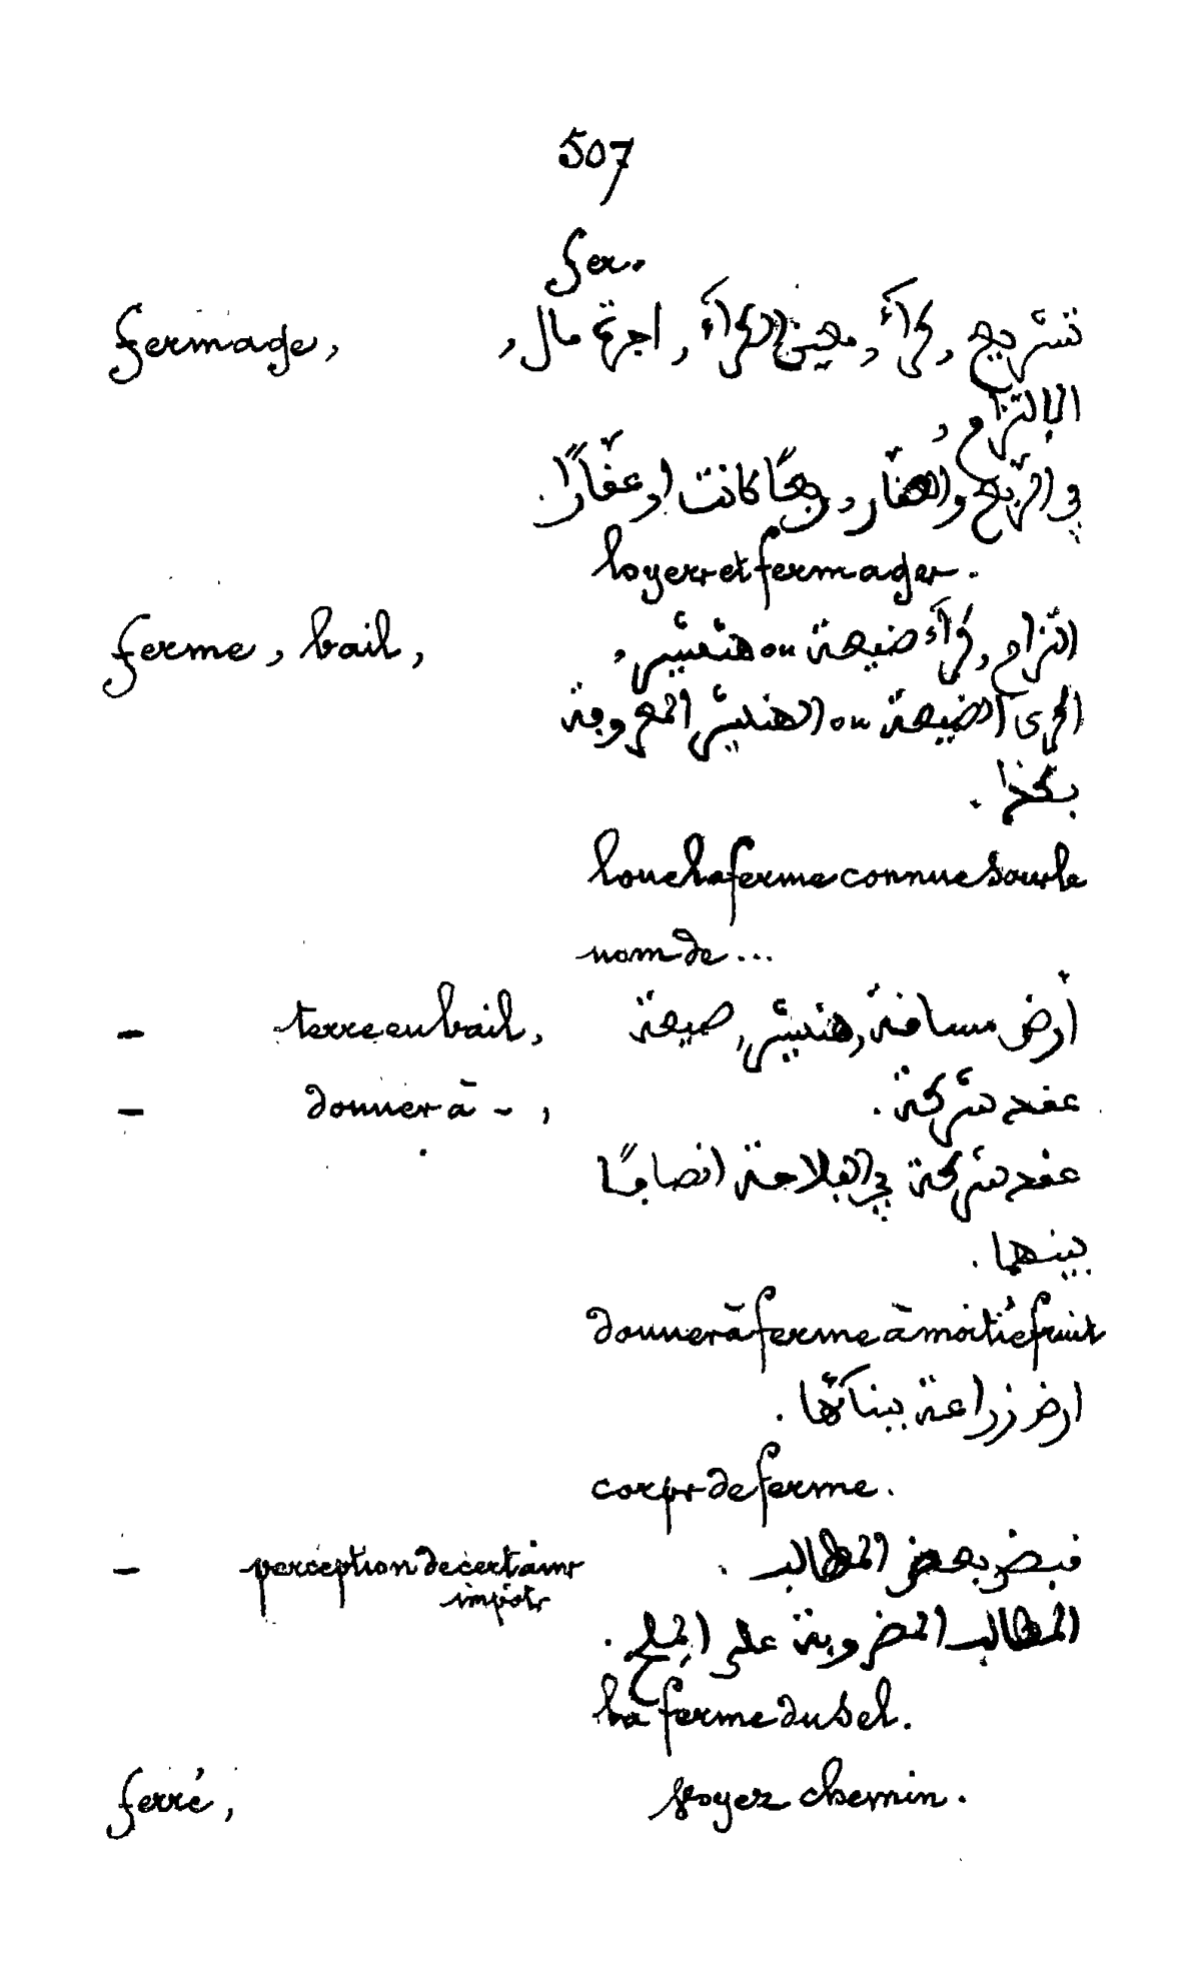 507
fer.
fermage, تسريح, كراءَ, معين الكراءَ, اجرة مال,
الالتزام,
في الرّبع والعفّار, ربعًا كانت او عفّارًا.
loyers et fermages.
ferme, bail, التزام, كراءَ ضيعة ou هنشير,
اكرى الضيعة ou الهنشير المعروفة
بكذا.
loue la ferme connue sous le
nom de ...
— terre en bail, أرض مسافة, هنشير, ضيعة
— donner à —, عقد شركة.
عقد شركة في الفلاحة انصافًا
بينهما.
donner à ferme à moitié fruit
ارض زراعة ببنائها.
corps de ferme.
— perception de certains قبض بعض المطالب.
impôts
المطالب المضروبة على الملح.
la ferme du sel.
ferré, voyez chemin.